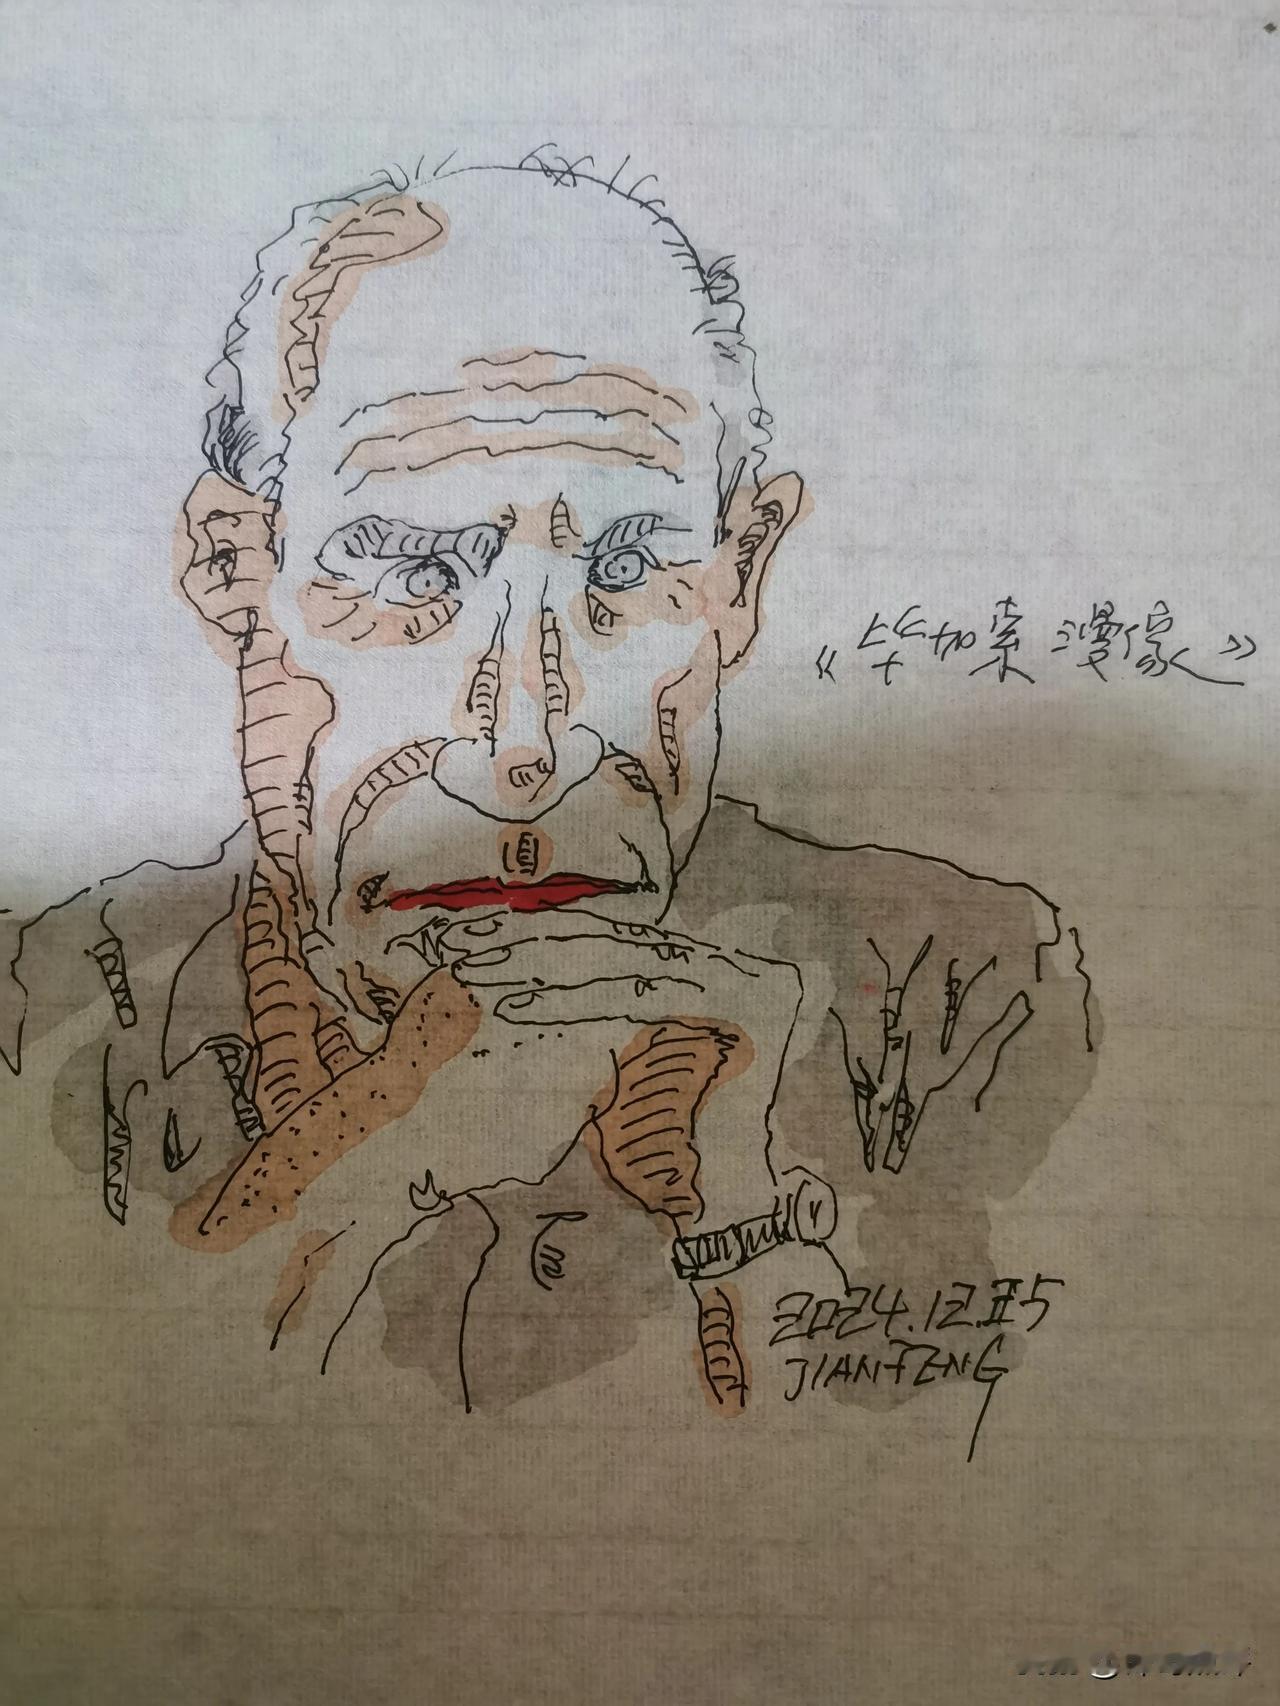 《毕加索漫像》
2024.12.25
JIANFENG